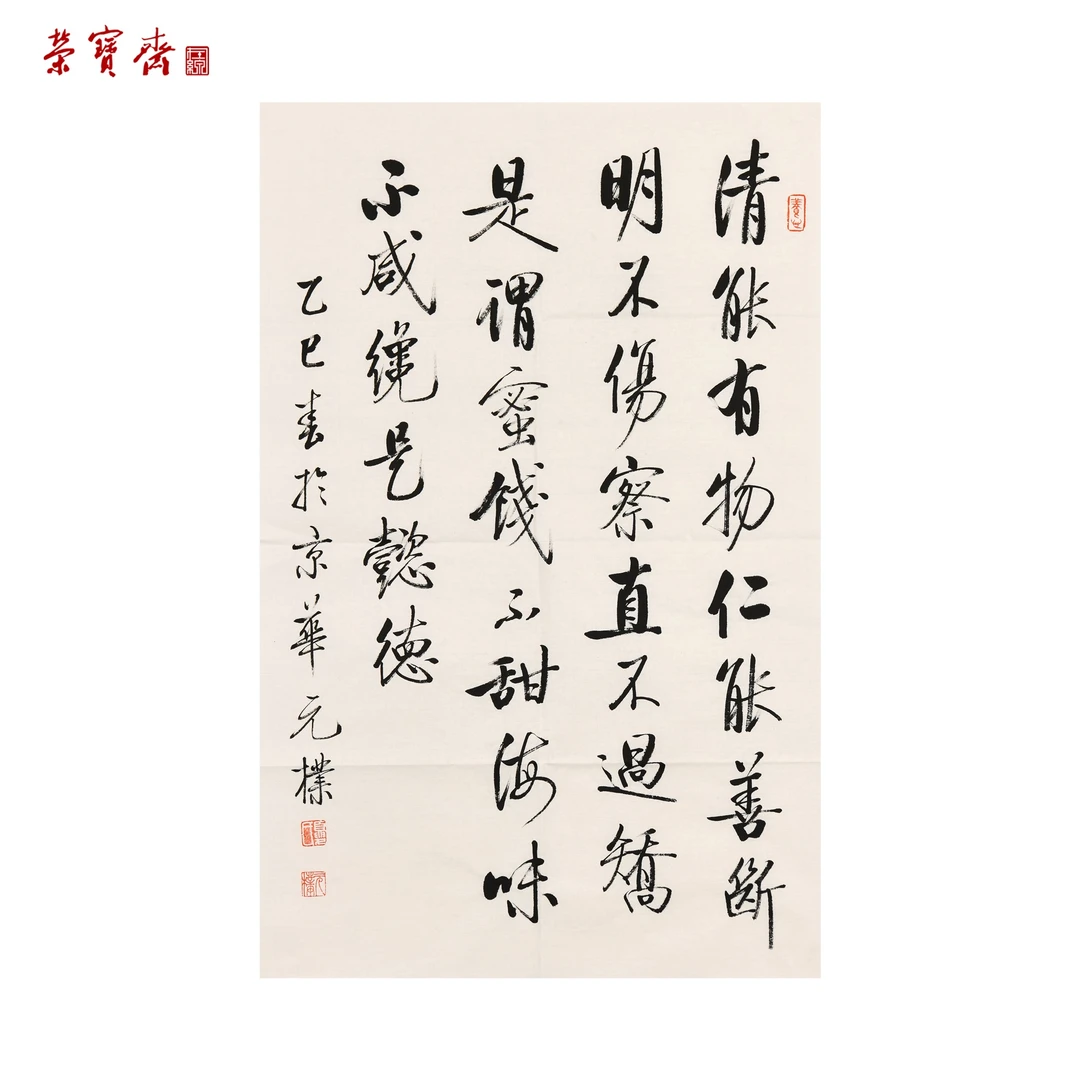 榮寶齋
清能有物仁能善斷
明不傷察直不過矯
是謂蜜餞不甜海味
不咸纔是懿德
乙巳春於京華元樸